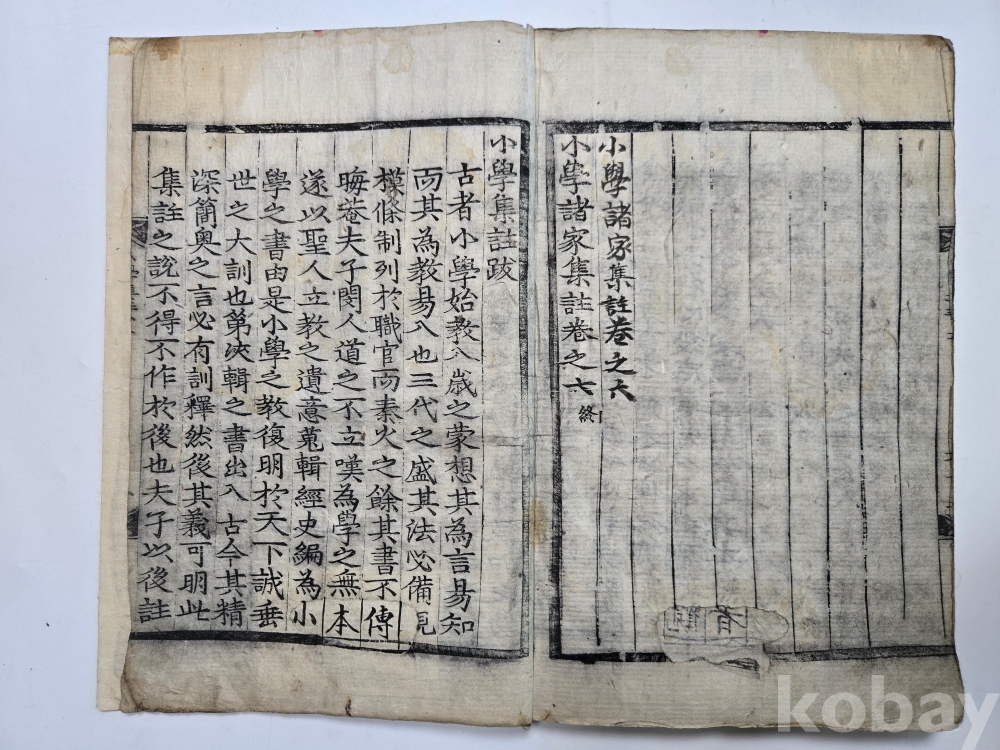 小學諸家集註卷之六
小學諸家集註卷之六 終
小學集註跋
古者小學始敎八歲之蒙想其為言易知
而其為敎易入也三代之盛其法必備見
模條制列於職官而秦火之餘其書不傳
晦菴夫子閔人道之不立嘆為學之無本
遂以聖人立敎之遺意蒐輯經史編為小
學之書由是小學之敎復明於天下誠垂
世之大訓也第浹輯之書出入古今其精
深簡奧之言必有訓釋然後其義可明此
集註之說不得不作於後也夫子以後註
kobay